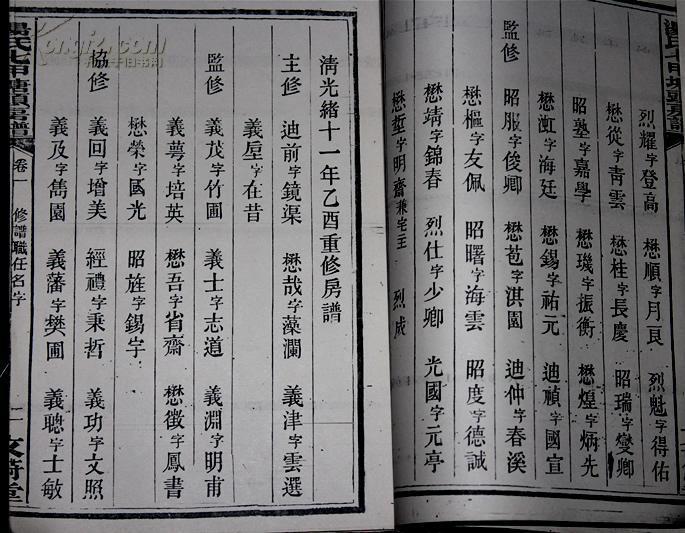 烈耀字登高 懋順字月艮 烈魁字得佑
懋從字青雲 懋桂字長慶 昭瑞字變卿
昭塾字嘉學 懋璣字振衡 懋煌字炳先
懋澒字海廷 懋錫字祐元 迪禎字國宣
監修 昭服字俊卿 懋苞字淇園 迪仲字春溪
懋樞字友佩 昭曙字海雲 昭度字德誠
懋靖字錦春 烈仕字少卿 光國字元亭
懋埏字明齋兼宅主 烈成
清光緒十一年乙酉重修房譜
主修 迪前字鏡渠 懋哉字藻瀾 義津字雲選
義垕字在昔
監修 義茂字竹圃 義士字志道 義淵字明甫
義蕚字培英 懋吾字省齋 懋徵字鳳書
懋榮字國光 昭旌字錫宇
協修 義回字增美 經禮字秉哲 義功字文照
義及字雋園 義藩字樊圃 義聰字士敏
湯氏七甲塘頭房譜 卷一 修譜職任名字 一